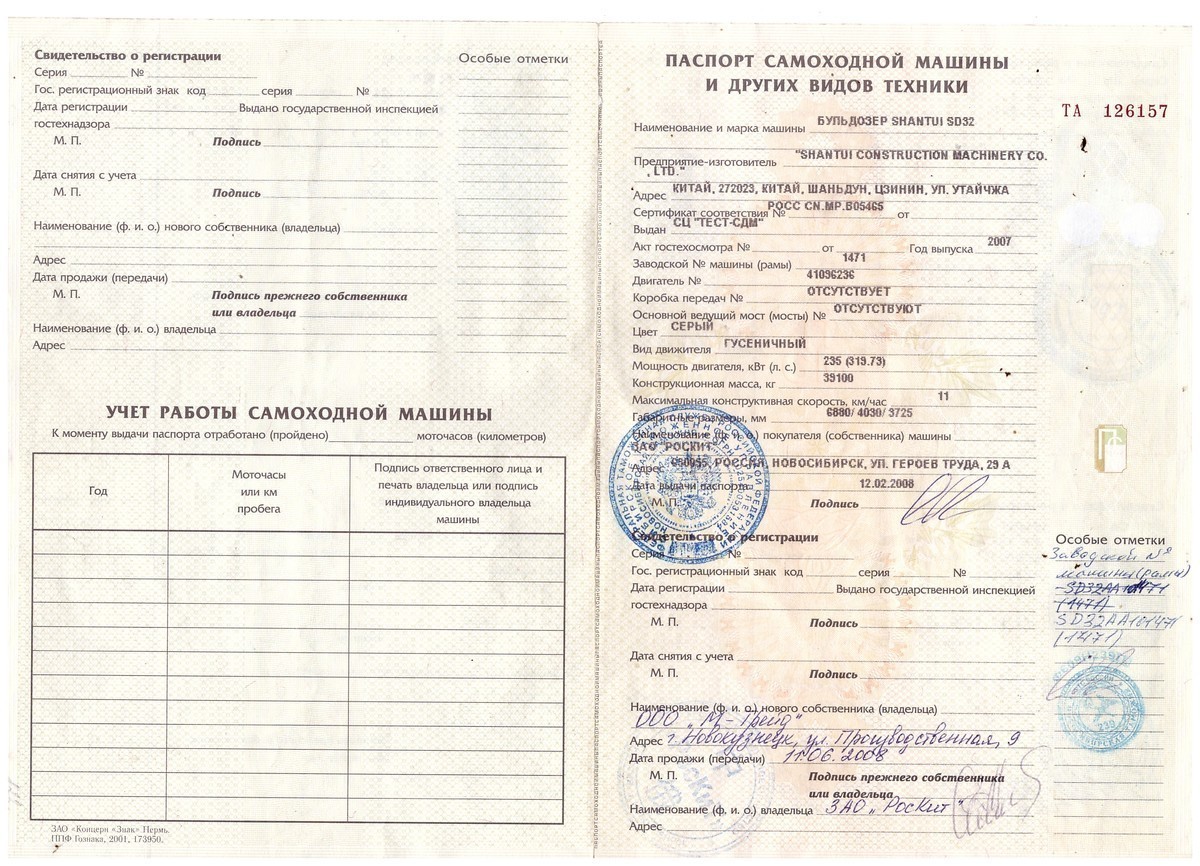 Свидетельство о регистрации
Серия № 
Гос. регистрационный знак код серия №
Дата регистрации Выдано государственной инспекцией
гостехнадзора
М. П. Подпись
Дата снятия с учета
М. П. Подпись
Наименование (ф. и. о.) нового собственника (владельца)
Адрес
Дата продажи (передачи)
М. П. Подпись прежнего собственника
или владельца
Наименование (ф. и. о.) владельца
Адрес
Особые отметки
УЧЕТ РАБОТЫ САМОХОДНОЙ МАШИНЫ
К моменту выдачи паспорта отработано (пройдено) моточасов (километров)
Год
Моточасы
или км
пробега
Подпись ответственного лица и
печать владельца или подпись
индивидуального владельца
машины
ЗАО «Концерн «Знак» Пермь.
ППФ Гознака, 2001, 173950.
ПАСПОРТ САМОХОДНОЙ МАШИНЫ
И ДРУГИХ ВИДОВ ТЕХНИКИ
ТА 126157
Наименование и марка машины БУЛЬДОЗЕР SHANTUI SD32
Предприятие-изготовитель "SHANTUI CONSTRUCTION MACHINERY CO.
, LTD."
Адрес КИТАЙ, 272023, КИТАЙ, ШАНЬДУН, ЦЗИНИН, УЛ. УТАЙЧЖА
Сертификат соответствия № РОСС CN.МР.В05465 от
Выдан СЦ "ТЕСТ-СДМ"
Акт гостехосмотра № от Год выпуска 2007
Заводской № машины (рамы) 1471
Двигатель № 41036236
Коробка передач № ОТСУТСТВУЕТ
Основной ведущий мост (мосты) № ОТСУТСТВУЮТ
Цвет СЕРЫЙ
Вид движителя ГУСЕНИЧНЫЙ
Мощность двигателя, кВт (л. с.) 235 (319.73)
Конструкционная масса, кг 39100
Максимальная конструктивная скорость, км/час 11
Габаритные размеры, мм 6880/ 4030/ 3725
Наименование (ф. и. о.) покупателя (собственника) машины
ЗАО "РОСКИТ"
Адрес РОССИЯ, НОВОСИБИРСК, УЛ. ГЕРОЕВ ТРУДА, 29 А
Дата выдачи паспорта 12.02.2008
М. П. Подпись
Свидетельство о регистрации
Серия №
Гос. регистрационный знак код серия №
Дата регистрации Выдано государственной инспекцией
гостехнадзора
М. П. Подпись
Дата снятия с учета
М. П. Подпись
Наименование (ф. и. о.) нового собственника (владельца)
ООО „М-Трейд"
Адрес г. Новокузнецк, ул. Производственная, 9
Дата продажи (передачи) 11.06.2008
М. П. Подпись прежнего собственника
или владельца
Наименование (ф. и. о.) владельца ЗАО „РосКит"
Адрес
Особые отметки
Заводской №
машины (рамы)
(1471)
SD32AA101471
(1471)